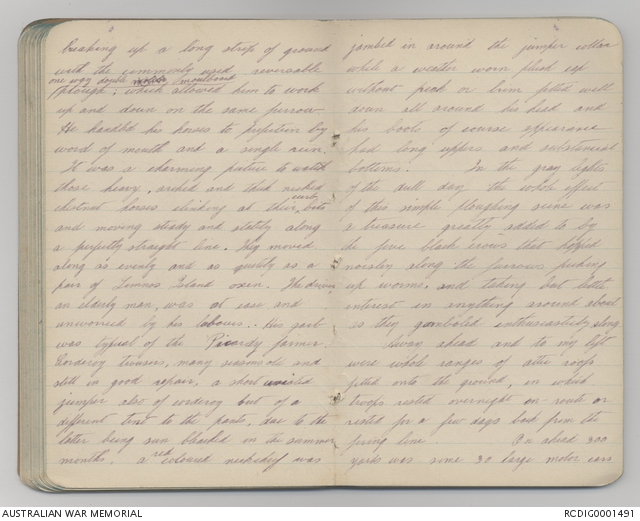 breaking up a long strip of ground
with the commonly used reversable
one way double mouldboard
plough, which allowed him to work
up and down on the same furrow
He handled his horses to perfection by
word of mouth and a single rein.
It was a charming picture to watch
those heavy, arched and thick necked
chestnut horses clinking at their bits
and moving steady and stately along
a perfectly straight line. They moved
along as evenly and as quietly as a
pair of Lemnos Island oxen. The driver
an elderly man, was at ease and
unworried by his labours.. His garb
was typical of the Picardy farmer.
Corderoy trousers, many seasons old and
still in good repair, a short waisted
jumper also of corderoy but of a
different tint to the pants, due to the
latter being sun bleached in the summer
months. a red coloured neckchief was
jambed in around the jumper collar
while a weather worn plush cap
without peak or brim fitted well
down all around his head and
his boots of course appearance
had long uppers and substantial
bottoms. In the gray lights
of the dull day the whole effect
of this simple ploughing scene was
a treasure greatly added to by
the five black crows that hopped
noisley along the furrows picking
up worms, and taking but little
interest in anything around about
as they gamboled enthusiasticly along
Away ahead and to my left
were whole ranges of attic roofs
fitted onto the ground, in which
troops rested overnight en route or
rested for a few days back from the
firing line. On ahead 300
yards was some 30 large motor cars
AUSTRALIAN WAR MEMORIAL
RCDIG0001491